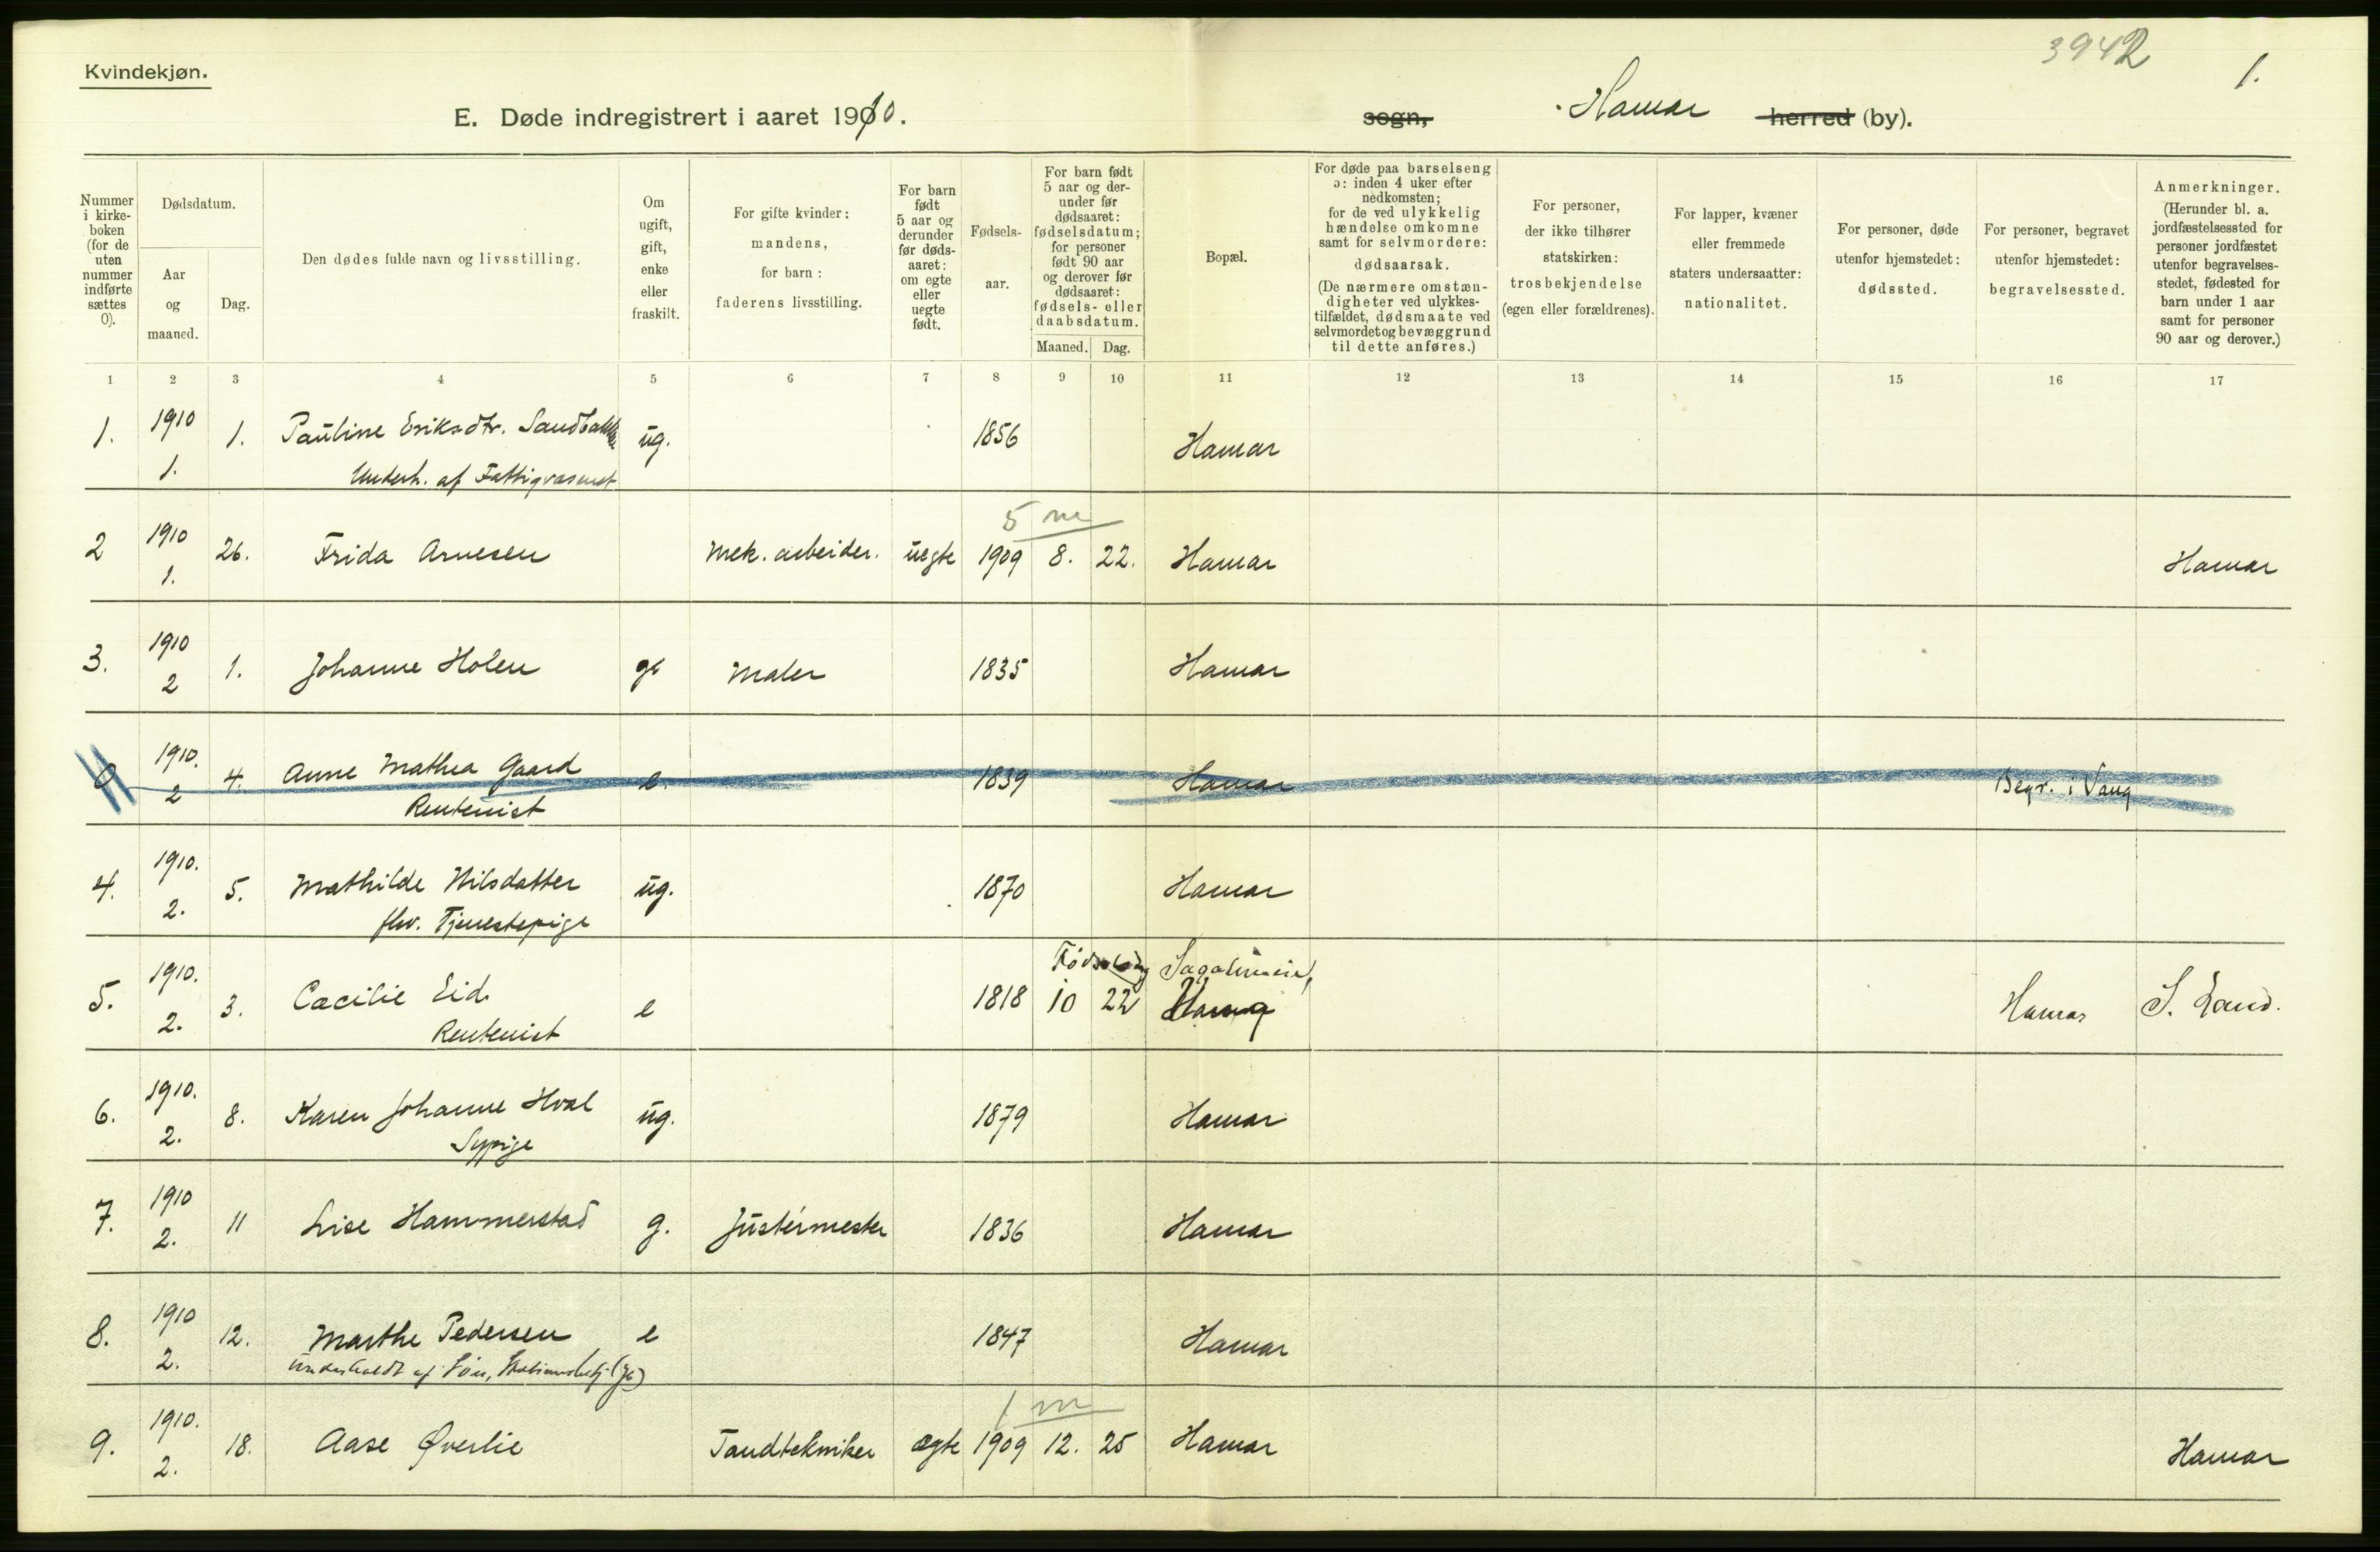 3942
1.
Kvindekjøn.
E. Døde indregistrert i aaret 1910.
sogn, Hamar herred (by).
Nummer i kirke- boken (for de uten nummer indførte sættes 0).
Dødsdatum.
Aar og maaned.
Dag.
Den dødes fulde navn og livsstilling.
Om ugift, gift, enke eller fraskilt.
For gifte kvinder: mandens, for barn: faderens livsstilling.
For barn født 5 aar og derunder før døds- aaret: om egte eller uegte født.
Fødsels- aar.
For barn født 5 aar og der- under før dødsaaret: fødselsdatum; for personer født 90 aar og derover før dødsaaret: fødsels- eller daabsdatum.
Maaned. Dag.
Bopæl.
For døde paa barselseng ɔ: inden 4 uker efter nedkomsten; for de ved ulykkelig hændelse omkomne samt for selvmordere: dødsaarsak. (De nærmere omstæn- digheter ved ulykkes- tilfældet, dødsmaate ved selvmordet og bevæggrund til dette anføres.)
For personer, der ikke tilhører statskirken: trosbekjendelse (egen eller forældrenes).
For lapper, kvæner eller fremmede staters undersaatter: nationalitet.
For personer, døde utenfor hjemstedet: dødssted.
For personer, begravet utenfor hjemstedet: begravelsessted.
Anmerkninger. (Herunder bl. a. jordfæstelsessted for personer jordfæstet utenfor begravelses- stedet, fødested for barn under 1 aar samt for personer 90 aar og derover.)
1 2 3 4 5 6 7 8 9 10 11 12 13 14 15 16 17
1. 1910 1. 1. Pauline Eriksdtr. Sandbakken ug. 1856 Hamar
Underh. af Fattigvæsenet
5 m
2 1910 1. 26. Frida Arnesen Mek. arbeider. uegte 1909 8. 22. Hamar Hamar
3. 1910 2 1. Johanne Holen g Maler 1835 Hamar
0 1910. 2 4. Anne Mathea Gaard e. 1839 Hamar Begr. i Vang
Rentenist
4. 1910. 2. 5. Mathilde Nilsdatter ug. 1870 Hamar
fhv. Tjenestepige
5. 1910. 2. 3. Cæcilie Eid. e 1818 10 22 Hamar S. Land.
Rentenist
6. 1910. 2. 8. Karen Johanne Hval ug. 1879 Hamar
Sypige
7. 1910 2. 11 Lise Hammerstad g. Justérmester 1836 Hamar
8. 1910 2. 12. Marthe Pedersen e 1847 Hamar
Underholdt af Søn,
1 m
9. 1910. 2. 18. Aase Øverlie Tandtekniker ægte 1909 12. 25 Hamar Hamar